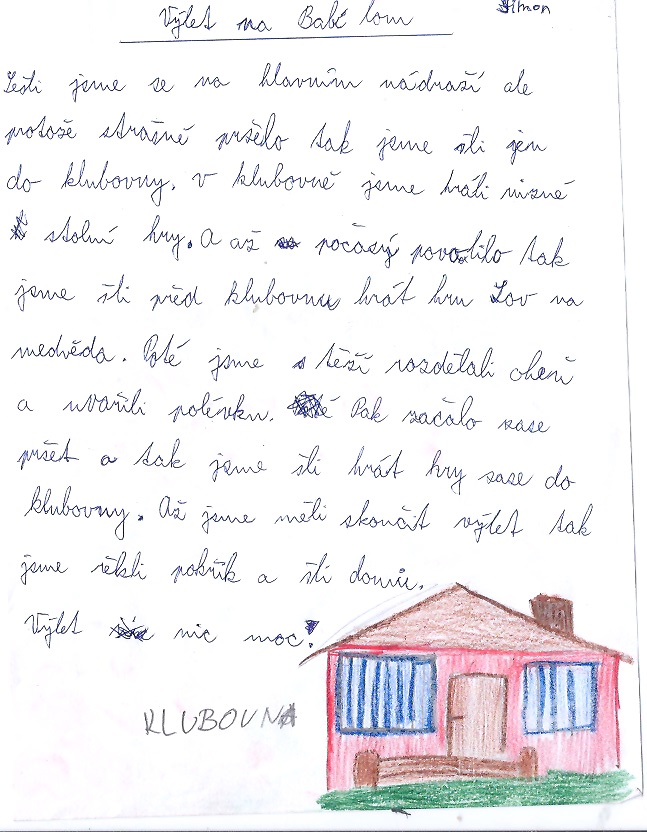 Výlet na Babí lom
Šimon
Sešli jsme se na hlavním nádraží ale
protože strašně pršelo tak jsme šli jen
do klubovny. v klubovně jsme hráli různé
stolní hry. A až počásý povolilo tak
jsme šli před klubovnu hrát hru Lov na
medvěda. Poté jsme s těží rozdělali oheň
a uvařili polévku. Pak začalo zase
pršet a tak jsme šli hrát hry zase do
klubovny. Až jsme měli skončit výlet tak
jsme řekli pokřik a šli domů.
Výlet nic moc!
KLUBOVNA